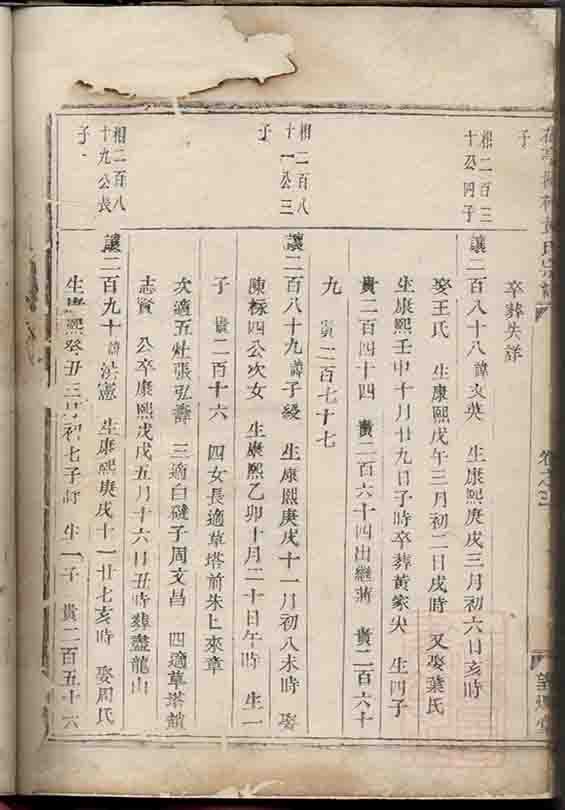 黃氏宗譜
卷之三
卒葬失詳
相二百三
十公四子
讓二百八十八諱文英 生康熙庚戌三月初六日亥時
娶王氏 生康熙戊午三月初二日戌時 又娶葉氏
生康熙壬申十月廿九日子時卒葬黃家尖 生四子
貴二百四十四 貴二百六十四出繼蔣 貴二百六十
九 貴二百七十七
相二百八
十一公三
子
讓二百八十九諱子綬 生康熙庚戌十一月初八未時 娶
陳標四公次女 生康熙乙卯十月二十日午時 生一
子 貴二百十六 四女長適草塔前朱上來章
次適五灶張弘壽 三適白磋子周文昌 四適草塔前
志賢 公卒康熙戊戌五月十六日丑時葬盡龍山
相二百八
十九公長
子
讓二百九十諱洪憲 生康熙庚戌十一廿七亥時 娶周氏
生康熙癸丑三月初七子時 生一子 貴二百五十六